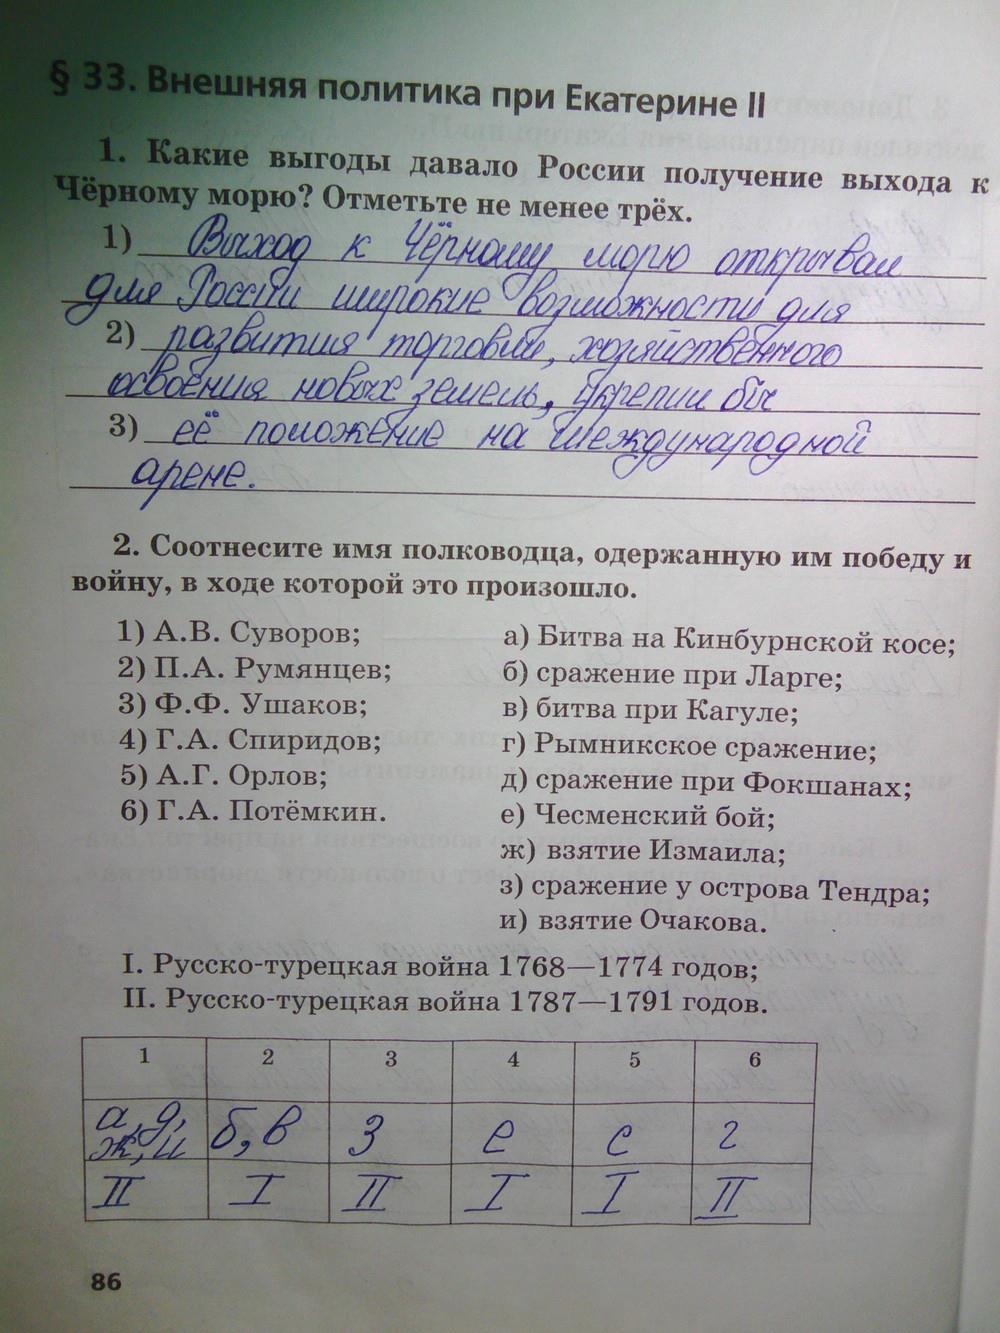 § 33. Внешняя политика при Екатерине II
1. Какие выгоды давало России получение выхода к
Чёрному морю? Отметьте не менее трёх.
1) Выход к Чёрному морю открывал
для России широкие возможности для
2) развития торговли, хозяйственного
освоения новых земель, укрепил бы
3) её положение на международной
арене.
2. Соотнесите имя полководца, одержанную им победу и
войну, в ходе которой это произошло.
1) А.В. Суворов;
2) П.А. Румянцев;
3) Ф.Ф. Ушаков;
4) Г.А. Спиридов;
5) А.Г. Орлов;
6) Г.А. Потёмкин.
а) Битва на Кинбурнской косе;
б) сражение при Ларге;
в) битва при Кагуле;
г) Рымникское сражение;
д) сражение при Фокшанах;
е) Чесменский бой;
ж) взятие Измаила;
з) сражение у острова Тендра;
и) взятие Очакова.
I. Русско-турецкая война 1768—1774 годов;
II. Русско-турецкая война 1787—1791 годов.
1 2 3 4 5 6
а, д, ж, и б, в з е с г
II I II I I II
86